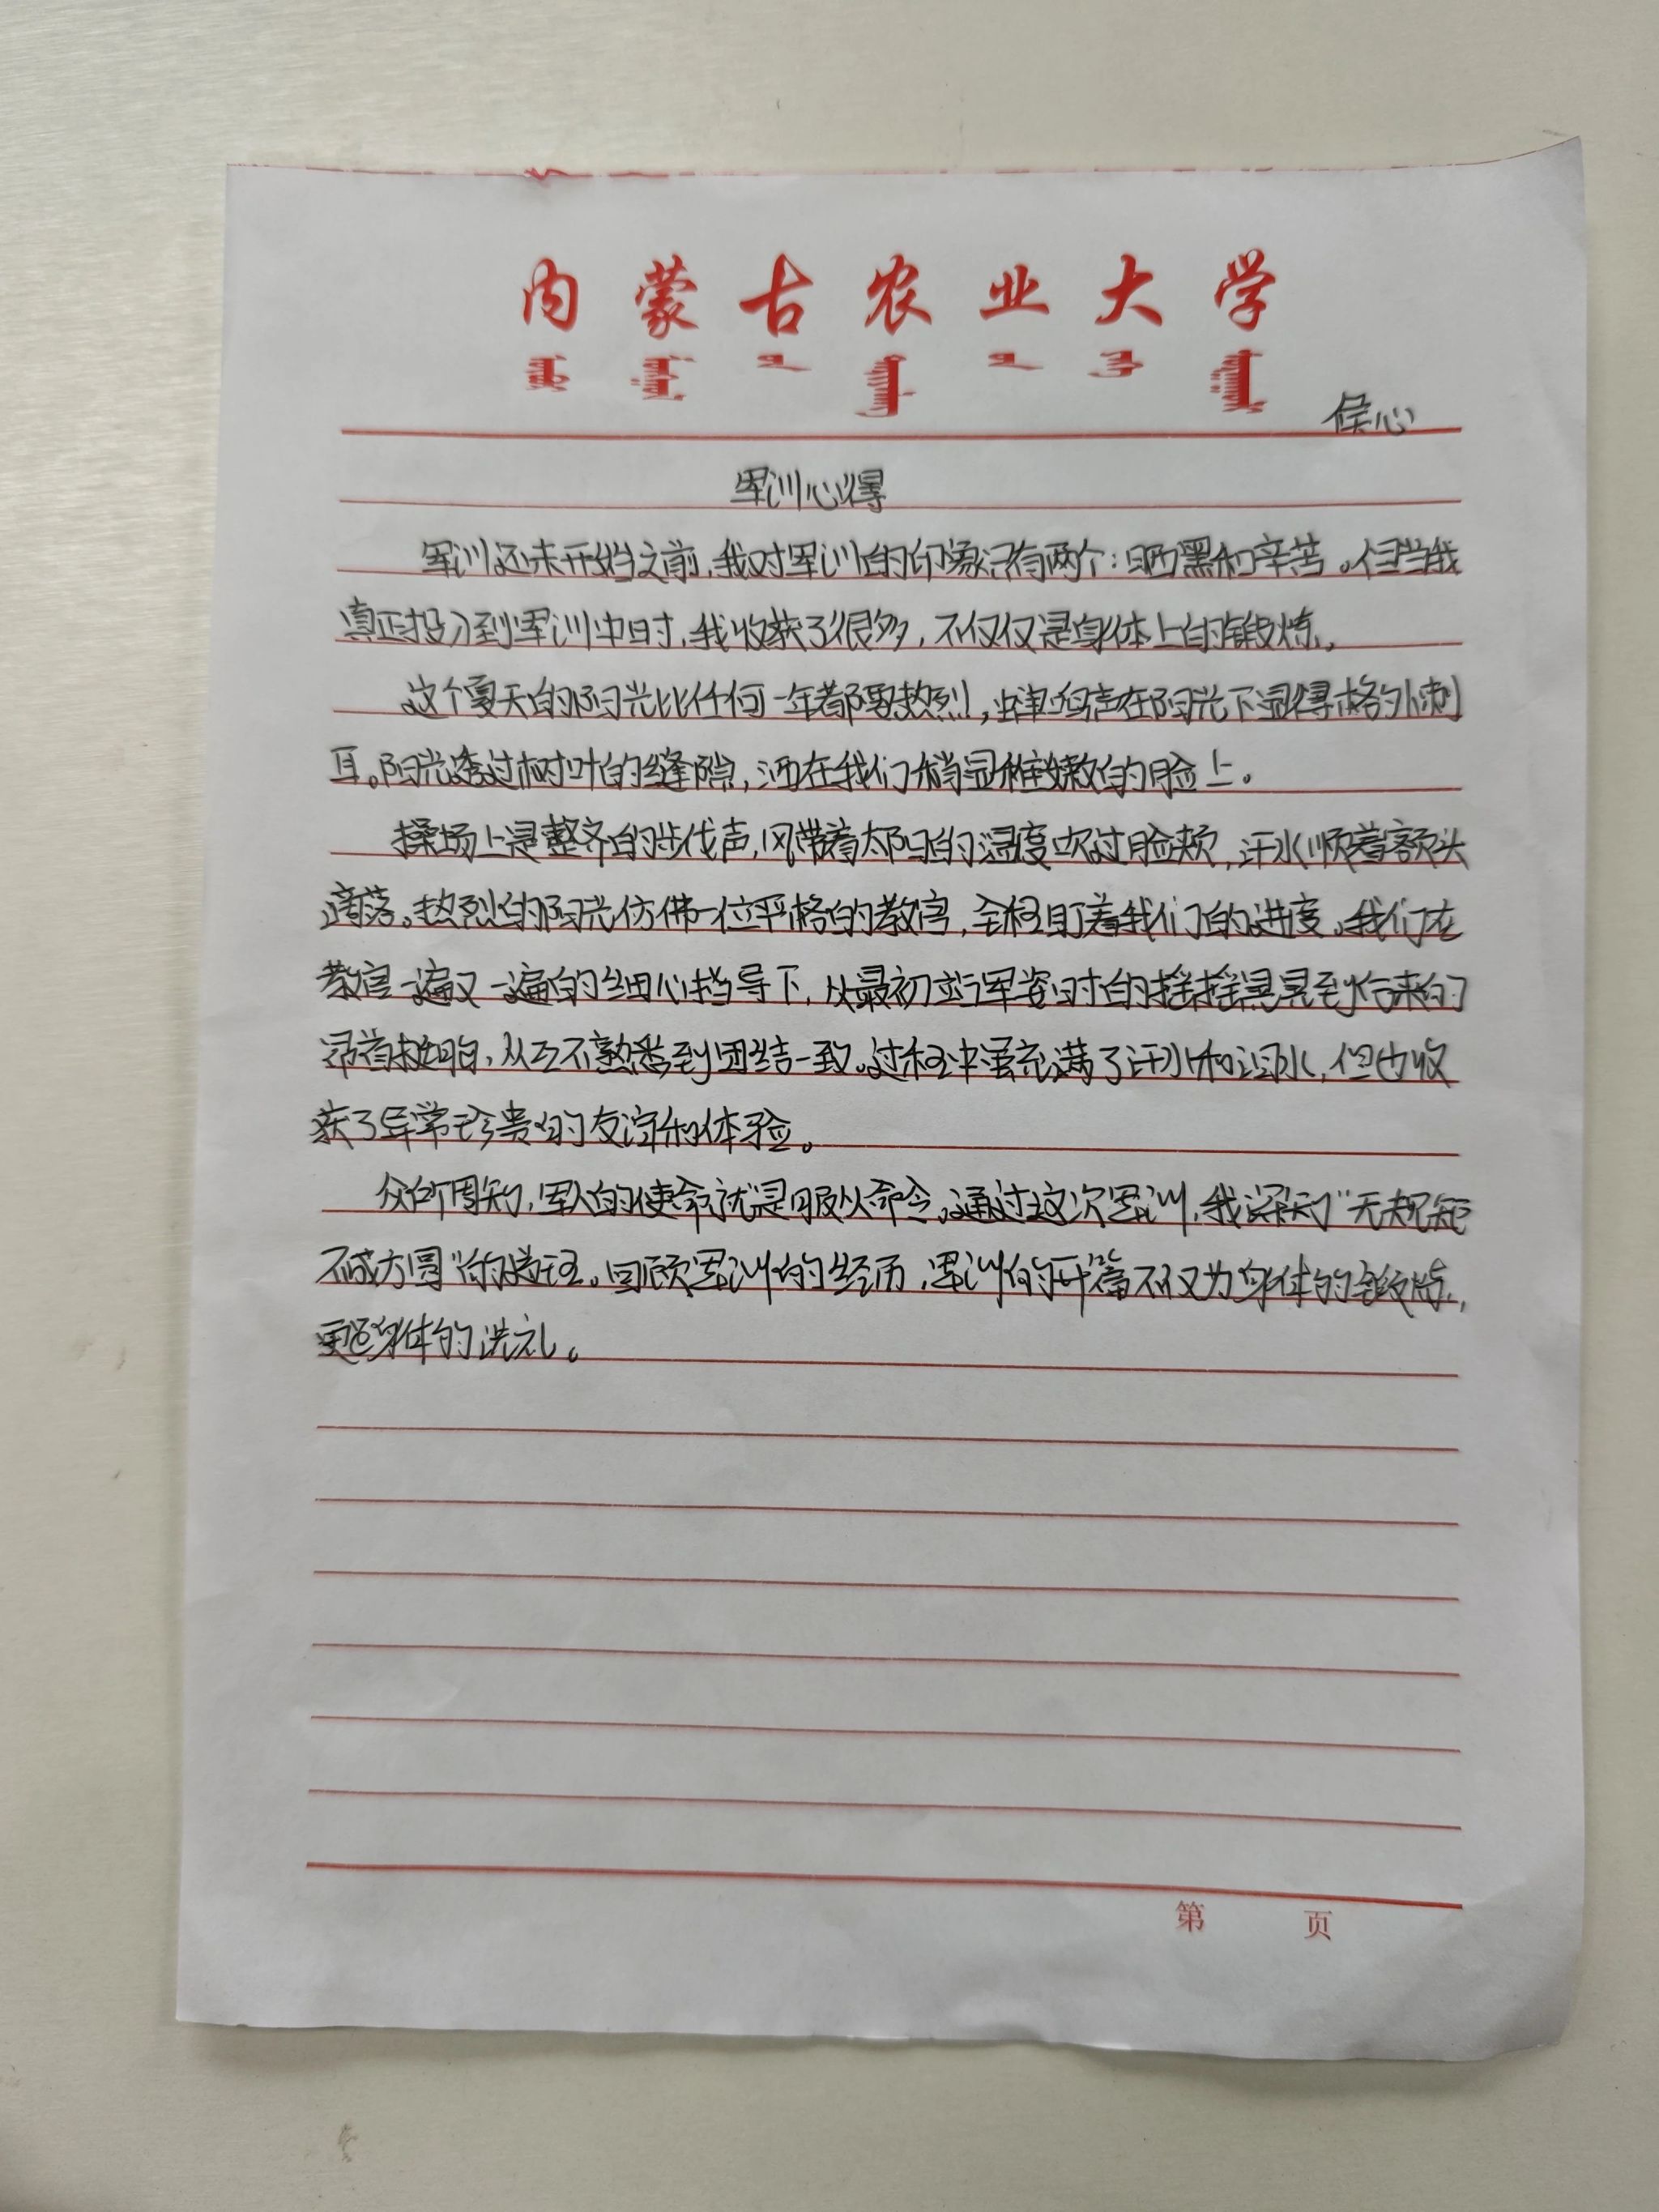 内蒙古农业大学
侯心
军训心得
军训还未开始之前,我对军训的印象只有两个:晒黑和辛苦。但当我
真正投入到军训中时,我收获了很多,不仅仅是身体上的锻炼。
这个夏天的阳光比任何一年都要热烈,蝉鸣声在阳光下显得格外刺
耳。阳光透过树叶的缝隙,洒在我们稍显稚嫩的脸上。
操场上是整齐的步伐声,风带着太阳的温度吹过脸颊,汗水顺着额头
滴落。热烈的阳光仿佛一位严格的教官,全程盯着我们的进度。我们在
教官一遍又一遍的细心指导下,从最初站军姿时的摇摇晃晃到后来的
昂首挺胸,从互不熟悉到团结一致。过程中虽充满了汗水和泪水,但也收
获了异常珍贵的友谊和体验。
众所周知,军人的使命就是服从命令。通过这次军训,我深知了“无规矩
不成方圆”的道理。回顾军训的经历,军训的开篇不仅为身体的锻炼,
更是身体的洗礼。
第 页